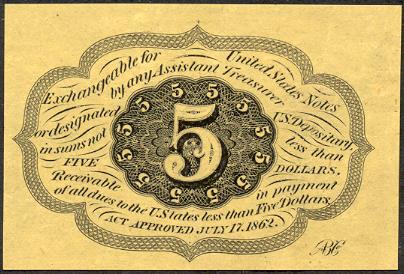 Exchangeable for United States Notes
by any Assistant Treasurer
or designated U.S. Depositary,
in sums not less than
FIVE DOLLARS.
Receivable in payment
of all dues to the U. States less than Five Dollars.
ACT APPROVED JULY 17. 1862.
5
5
5
5
5
5
5
5
5
5
5
ABC